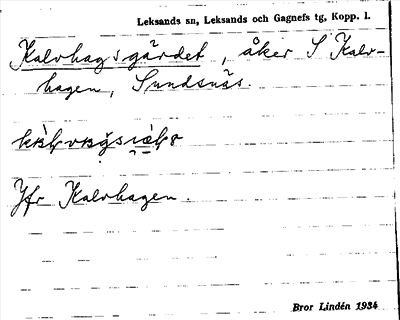 Leksands sn, Leksands och Gagnefs tg, Kopp. l.
Kalvhagsgärdet, åker S Kalv-
hagen, Sundsnäs.
Jfr Kalvhagen.
Bror Lindén 1934